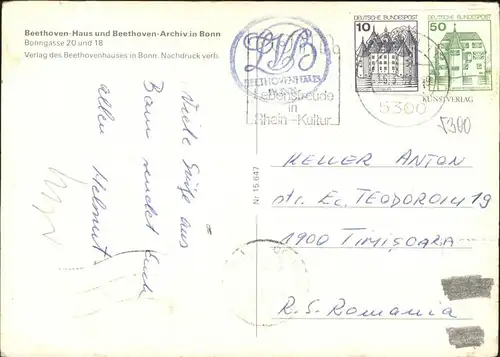 Beethoven-Haus und Beethoven-Archiv in Bonn
Bonngasse 20 und 18
Verlag des Beethovenhauses in Bonn. Nachdruck verb.
LVB
BEETHOVENHAUS
BONN
Lebensfreude
in
Rhein-Kultur
DEUTSCHE BUNDESPOST
10
DEUTSCHE BUNDESPOST
50
5300
KUNSTVERLAG
5300
Viele Grüße aus
Bonn sendet Euch
allen Helmut
Nr. 15 647
KELLER ANTON
str. Ec. TEODOROIU 19
1900 TIMIȘOARA
R.S. Romania